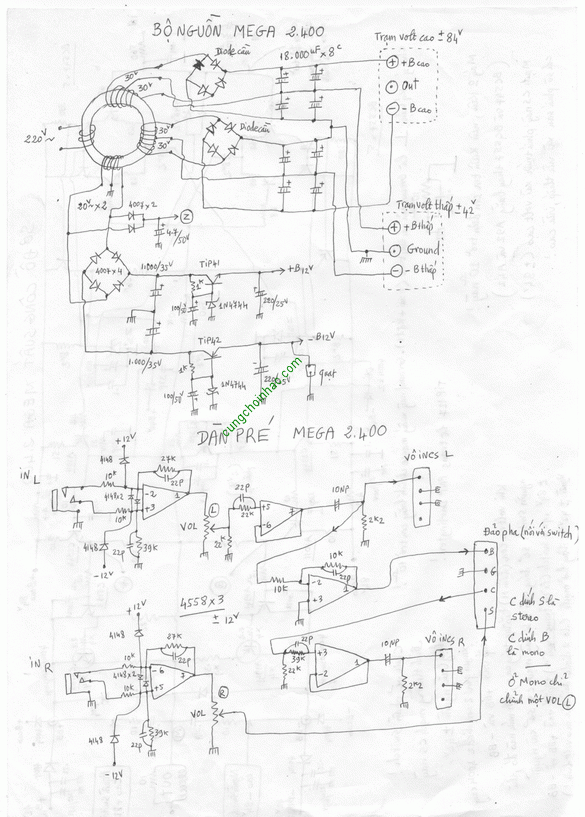 BỘ NGUỒN MEGA 2.400
Trạm volt cao ± 84V
Diode cầu
18.000µF x 8c
+B cao
Out
-B cao
30V
30V
220V ~
30V
30V
Diode cầu
Trạm volt thấp ± 42V
+B thấp
Ground
-B thấp
20V ~ x 2
4007 x 2
Z
47/50V
4007 x 4
1.000/35V
TIP41
+B12V
1K
100/50V
1N4744
220/25V
TIP42
-B12V
1.000/35V
1K
100/50V
1N4744
220/25V
quạt
cungchoinhac.com
DÀN PRÉ MEGA 2.400
+12V
IN L
4148
27K
22p
10K
4148x2
-2
+3
1
10K
4148
22p
39K
-12V
L
VOL
22p
22K
22K
+5
-6
7
10NP
2K2
VÔ INCS L
Đảo pha (nối với switch)
B
G
C
S
10K
22p
10K
-2
+3
1
C dính S là
stereo
C dính B
là mono
Ở Mono chỉ
chỉnh một VOL L
4558 x 3
± 12V
+12V
4148
27K
22p
IN R
10K
4148x2
-6
+5
7
10K
4148
22p
39K
-12V
R
VOL
22p
39K
22K
+3
-2
1
10NP
2K2
VÔ INCS R